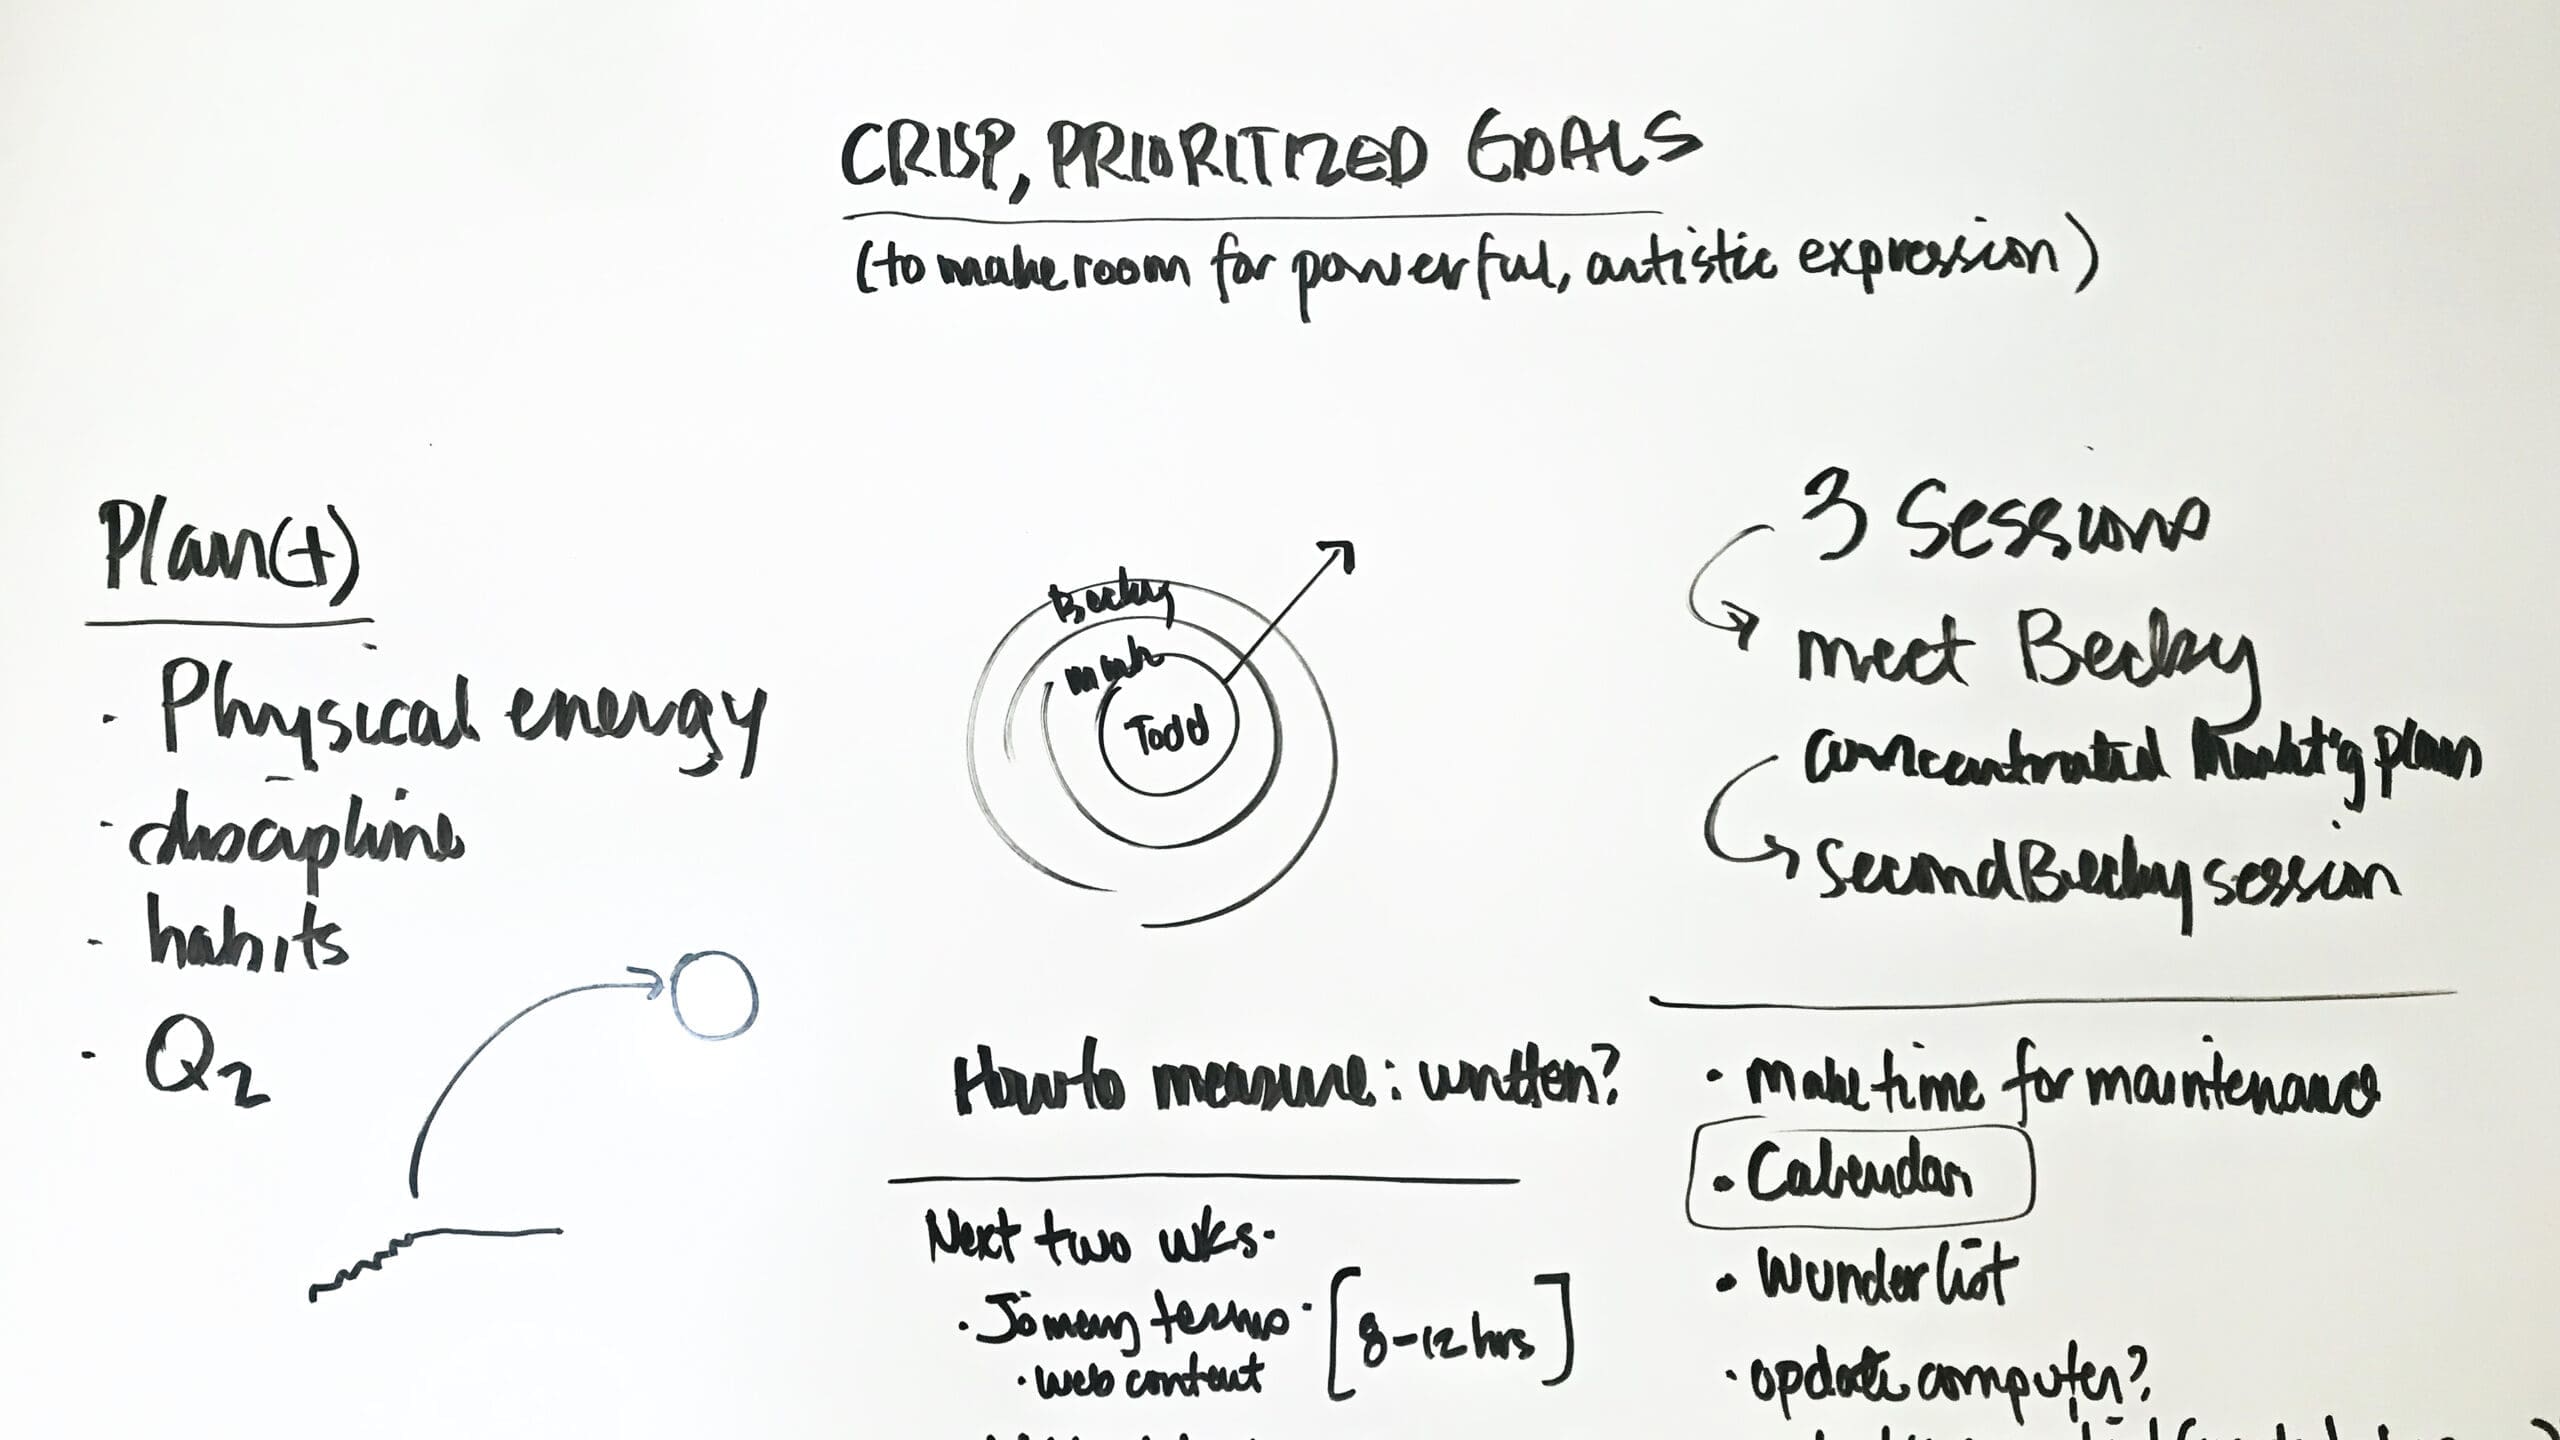 CRISP, PRIORITIZED GOALS
(to make room for powerful, artistic expression)
Plan(t)
· Physical energy
· discipline
· habits
· Q2
Becky
Todd
How to measure: written?
Next two wks.
· terms · [8-12 hrs]
· web content
3 Sessions
meet Becky
concentrated plan
second Becky session
· make time for maintenance
· Calendar
· Wunderlist
· update computer?